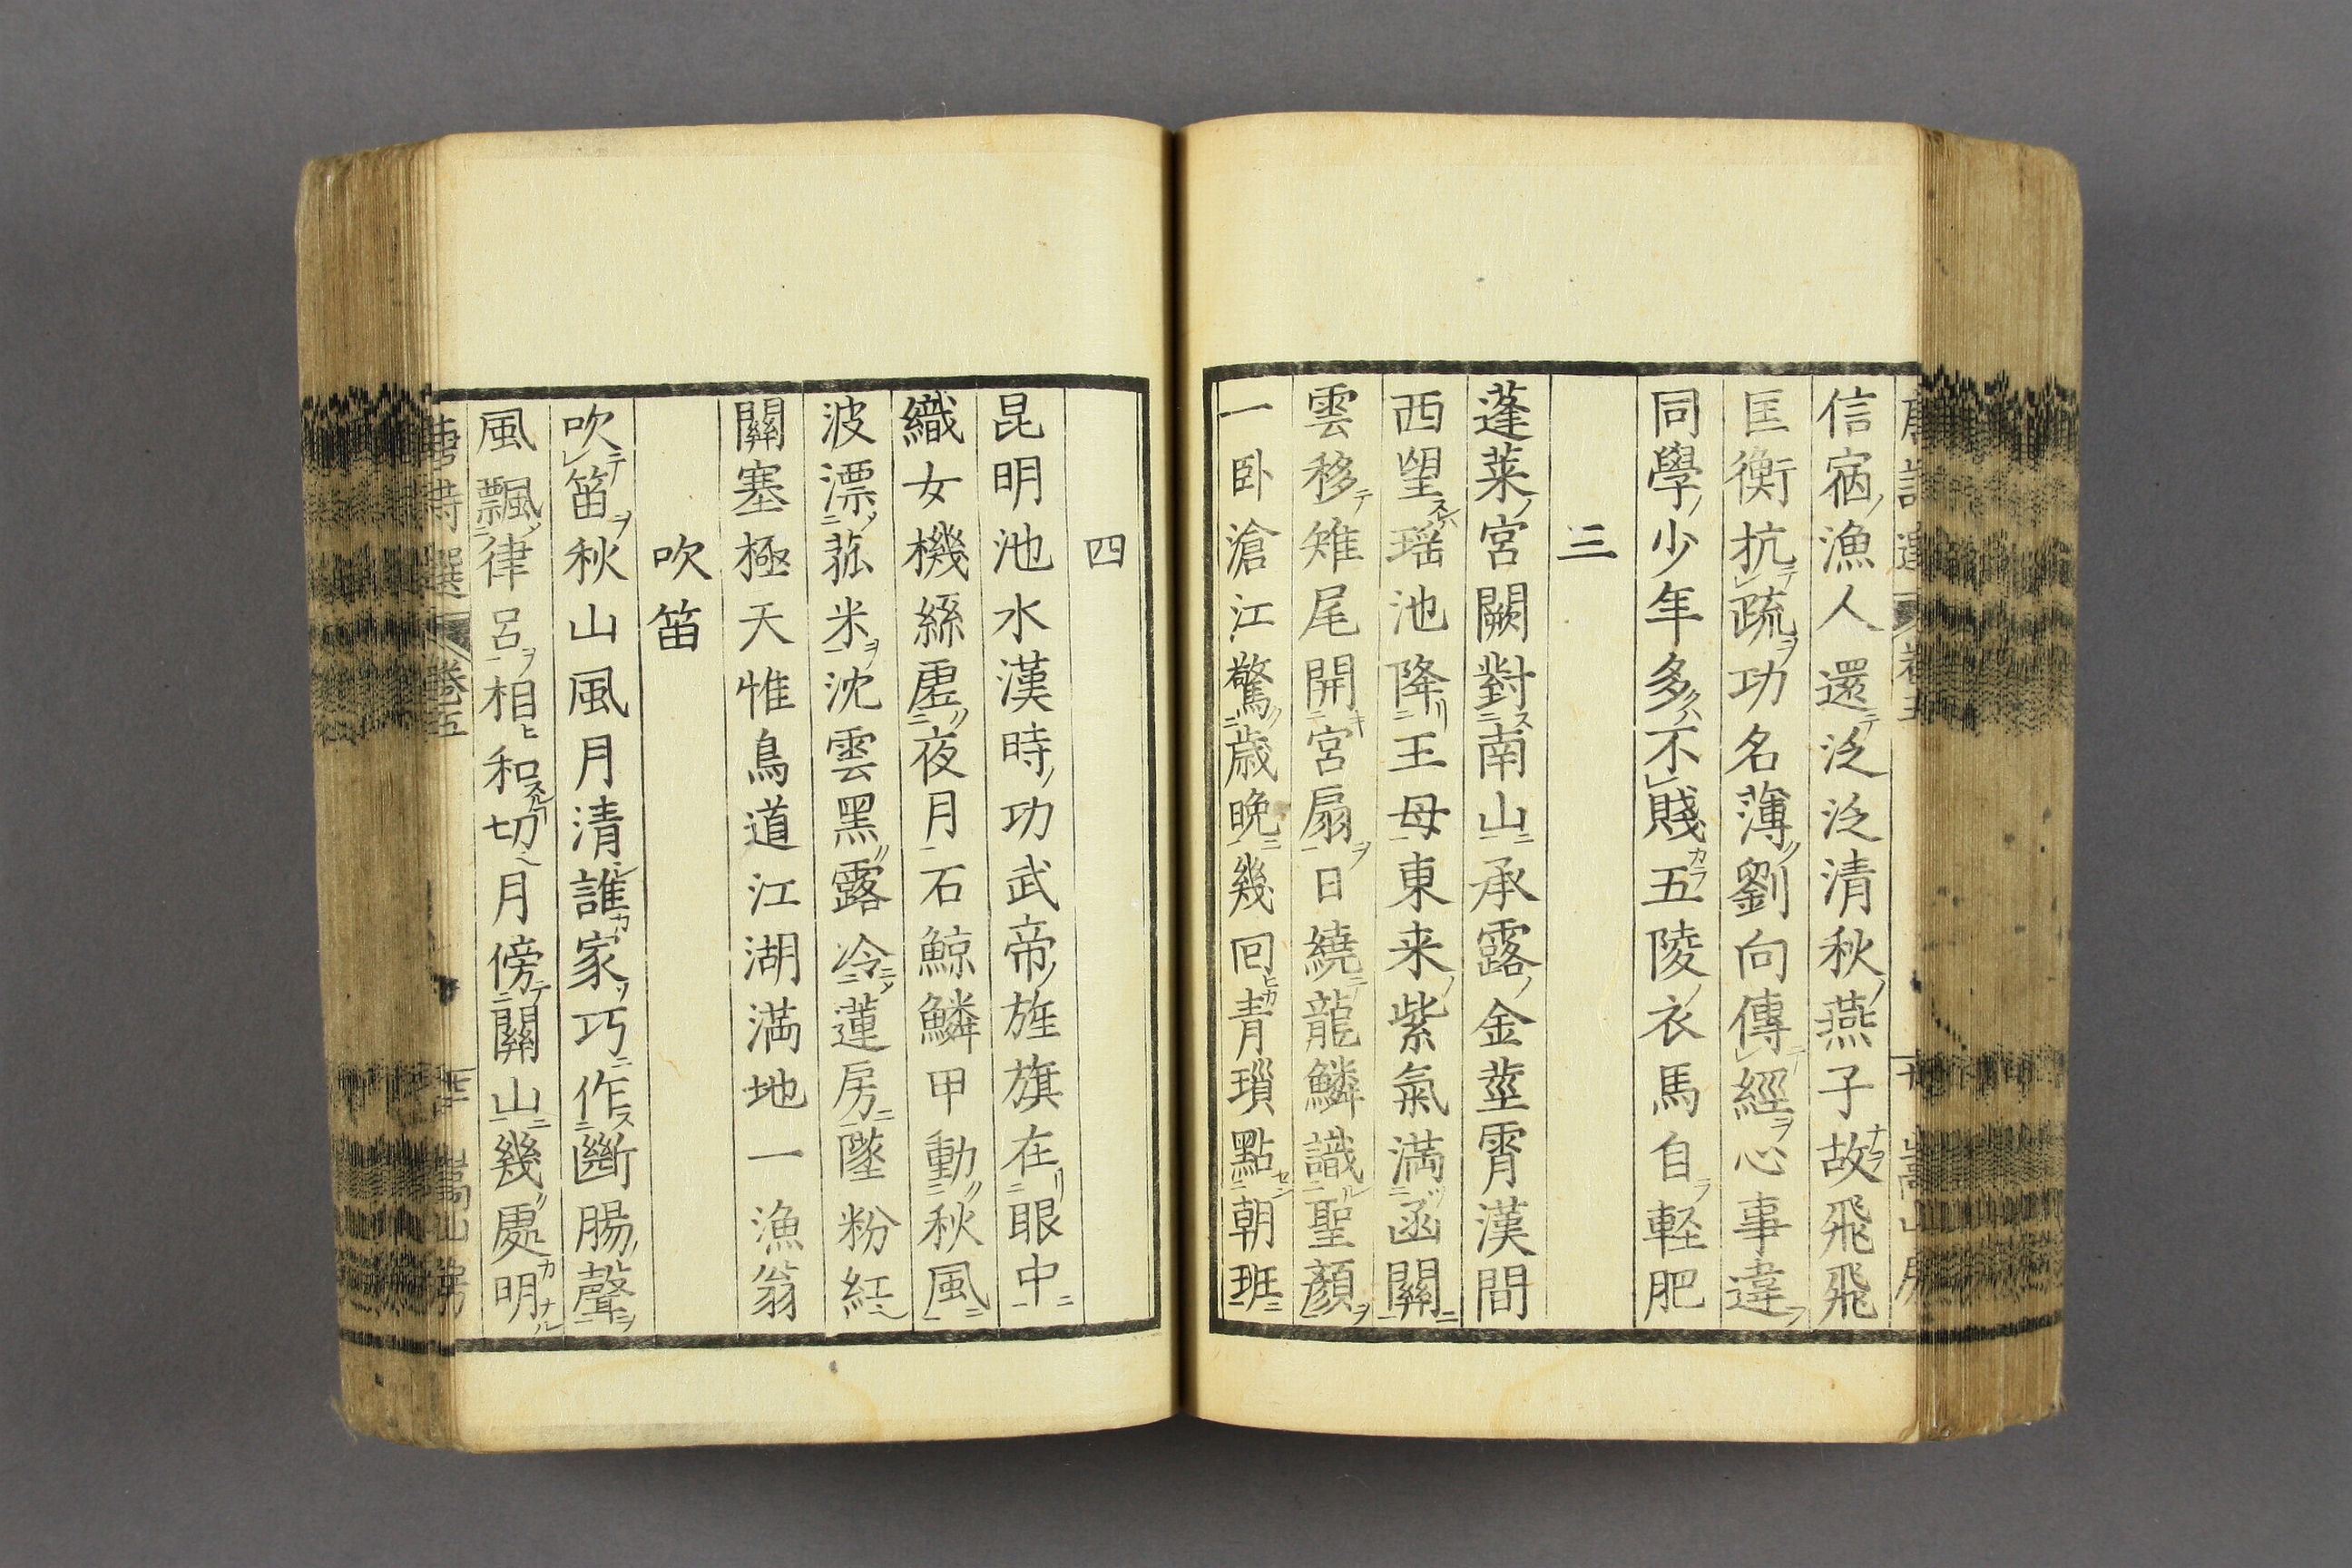 信宿漁人還泛泛清秋燕子故飛飛
匡衡抗疏功名薄劉向傳經心事違
同學少年多不賤五陵衣馬自軽肥
三
蓬萊宮闕對南山承露金莖霄漢間
西望瑶池降王母東来紫氣満函關
雲移雉尾開宮扇日繞龍鱗識聖顏
一卧滄江驚歳晩幾回青瑣點朝班
四
昆明池水漢時功武帝旌旗在眼中
織女機絲虛夜月石鯨鱗甲動秋風
波漂菰米沈雲黑露冷蓮房墜粉紅
關塞極天惟鳥道江湖満地一漁翁
吹笛
吹笛秋山風月清誰家巧作斷腸聲
風飄律呂相和切月傍關山幾處明
唐詩選 卷五